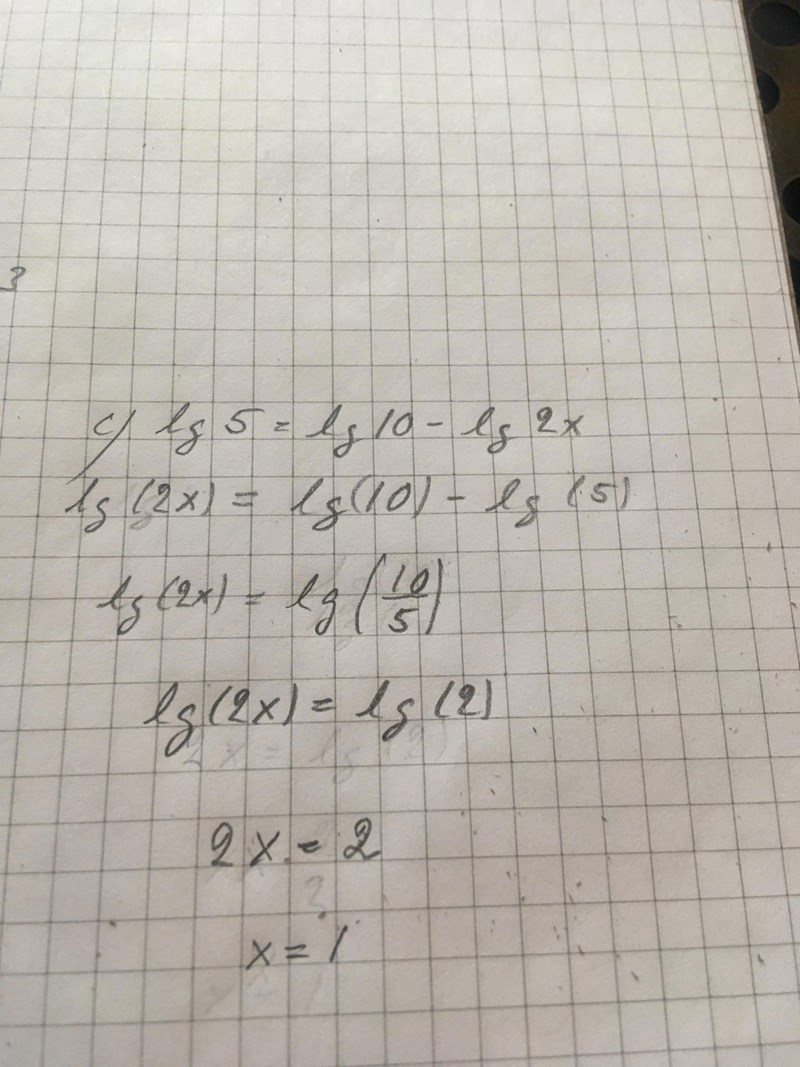 3
c) lg 5 = lg 10 - lg 2x
lg (2x) = lg(10) - lg (5)
lg (2x) = lg (10/5)
lg (2x) = lg (2)
2x = lg (2)
2x = 2
x = 1